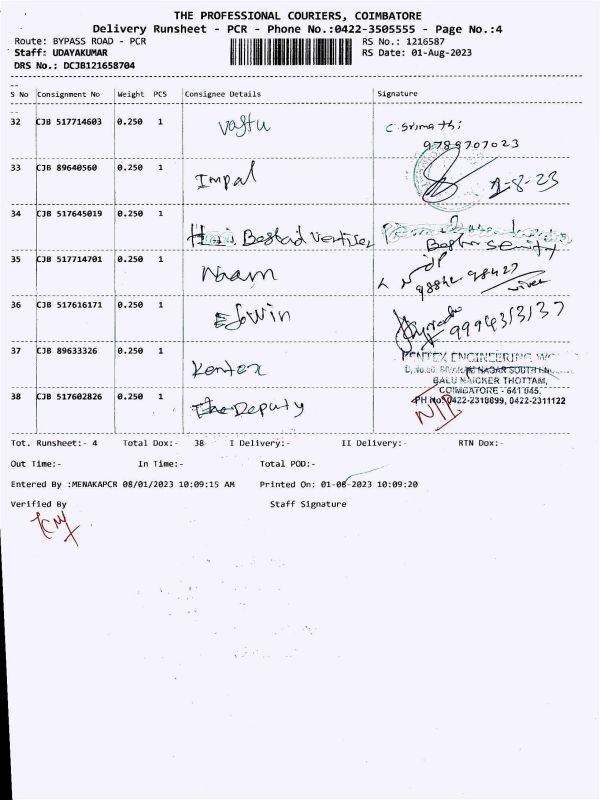 THE PROFESSIONAL COURIERS, COIMBATORE
Delivery Runsheet - PCR - Phone No.:0422-3505555 - Page No.:4
Route: BYPASS ROAD - PCR RS No.: 1216587
Staff: UDAYAKUMAR RS Date: 01-Aug-2023
DRS No.: DCJB121658704
S No Consignment No Weight PCS Consignee Details Signature
32 CJB 517714603 0.250 1 Vastu C. Srimathi
9789707023
33 CJB 89640560 0.250 1 Impal 1-8-23
34 CJB 517645019 0.250 1
35 CJB 517714701 0.250 1 Naam
36 CJB 517616171 0.250 1 Edwin
37 CJB 89633326 0.250 1 Kentex KENTEX ENGINEERING
NAGAR SOUTH
BALU NAICKER THOTTAM,
COIMBATORE - 641 045.
38 CJB 517602826 0.250 1 The Deputy PH No: 0422-2318699, 0422-2311122
Tot. Runsheet:- 4 Total Dox:- 38 I Delivery:- II Delivery:- RTN Dox:-
Out Time:- In Time:- Total POD:-
Entered By :MENAKAPCR 08/01/2023 10:09:15 AM Printed On: 01-08-2023 10:09:20
Verified By Staff Signature